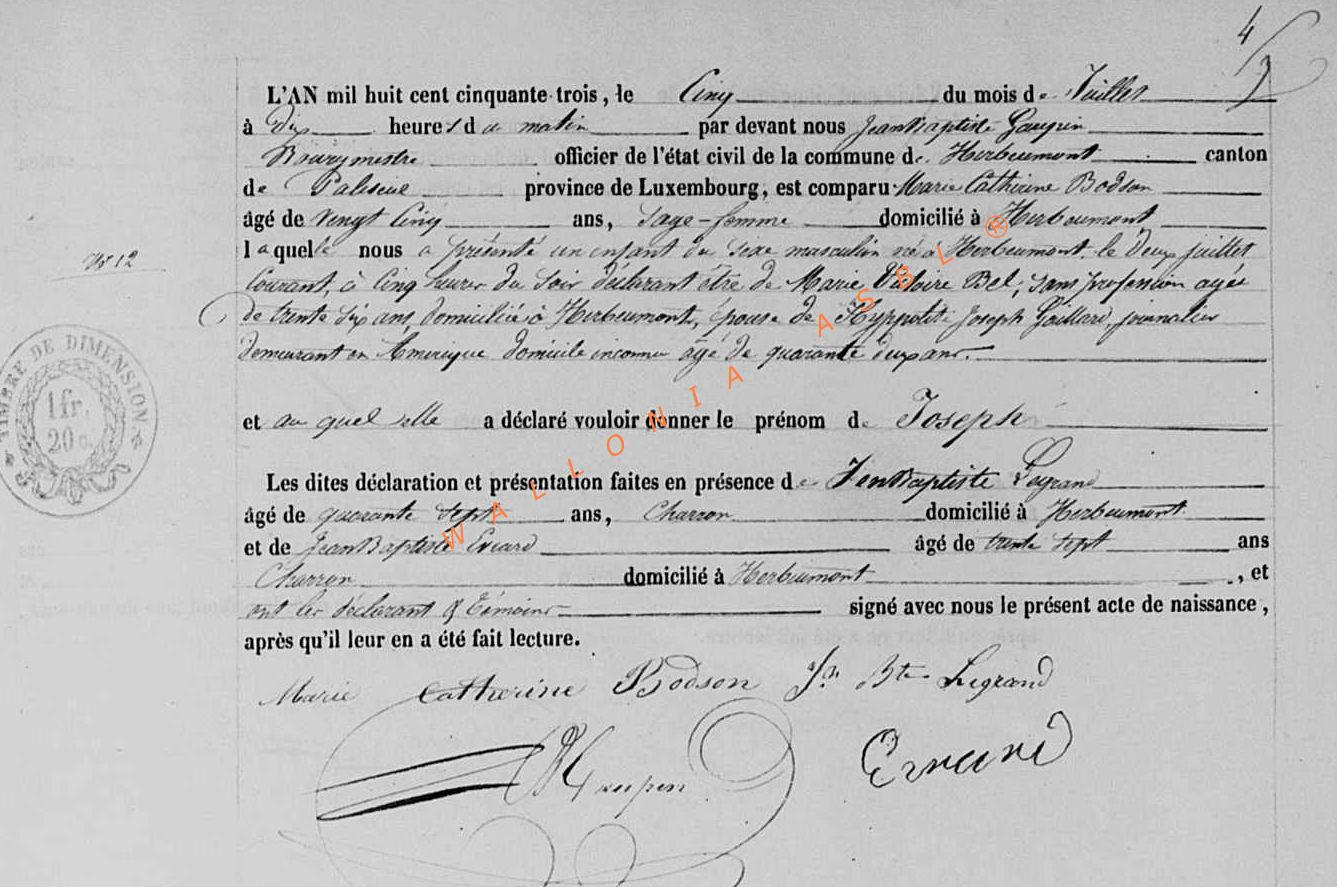 4
L'AN mil huit cent cinquante-trois, le Cinq du mois de Juillet
à dix heures du matin par devant nous Jean Baptiste Gaupin
Bourgmestre officier de l'état civil de la commune de Herbeumont canton
de Paliseul province de Luxembourg, est comparu Marie Catherine Bodson
âgé de vingt cinq ans, sage-femme domicilié à Herbeumont
laquelle nous a présenté un enfant du sexe masculin né à Herbeumont le deux juillet
No 12
courant, à cinq heures du soir déclarant être de Marie Victoire Bel, sans profession agée
de trente six ans, domiciliée à Herbeumont, épouse de Hyppolite Joseph Gaillard, journalier
demeurant en Amerique domicile inconnu agé de quarante deux ans.
TIMBRE DE DIMENSION
1 fr.
20 c.
et au quel elle a déclaré vouloir donner le prénom de Joseph
Les dites déclaration et présentation faites en présence de Jean Baptiste Legrand
âgé de quarante sept ans, Charron domicilié à Herbeumont
et de Jean Baptiste Evrard âgé de trente sept ans
Charron domicilié à Herbeumont, et
ont les déclarant & témoins signé avec nous le présent acte de naissance,
après qu'il leur en a été fait lecture.
Marie Catherine Bodson Jn Bte Legrand
Gaupin Evrard
WALLONIA ASBL ®